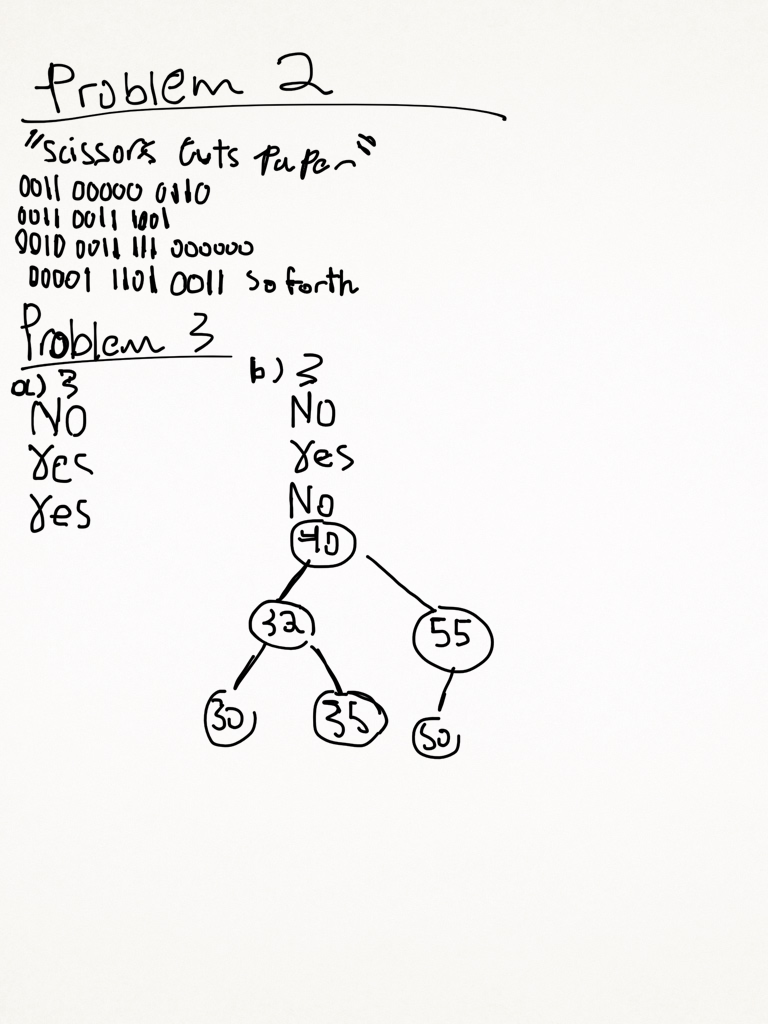 Problem 2
"Scissors Cuts Paper"
0011 00000 0110
0011 0011 1001
0010 0011 111 000000
00001 1101 0011 So forth
Problem 3
a) 3
NO
Yes
Yes
b) 3
NO
Yes
No
40
32
55
30
35
50